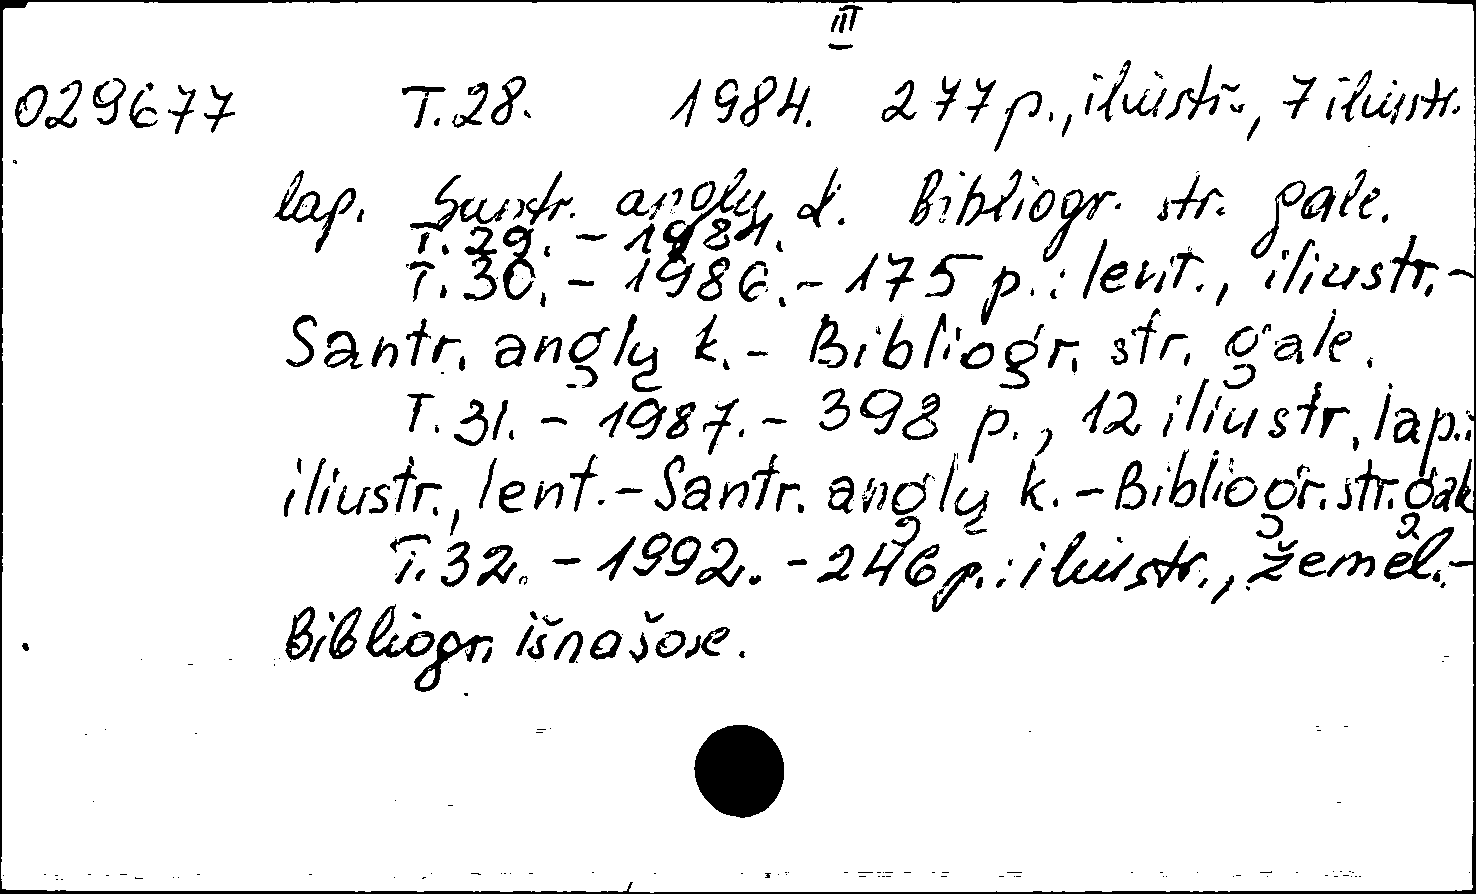 III
029677 T.28. 1984. 277 p., iliustr., 7 iliustr.
lap. Santr. anglų k. Bibliogr. str. gale.
T.29. – 1984.
T.30. – 1986. – 175 p. : lent., iliustr. –
Santr. anglų k. – Bibliogr. str. gale.
T.31. – 1987. – 398 p., 12 iliustr. lap.:
iliustr., lent. – Santr. anglų k. – Bibliogr. str. gale
T.32. – 1992. – 246 p. : iliustr., žemėl. –
Bibliogr. išnašose.